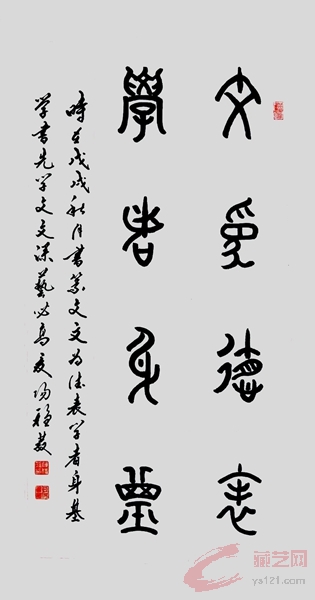 文為德表
學者身基
時在戊戌秋月書篆文文为德表学者身基
学書先学文文深藝必高
藏艺网
ys121.com